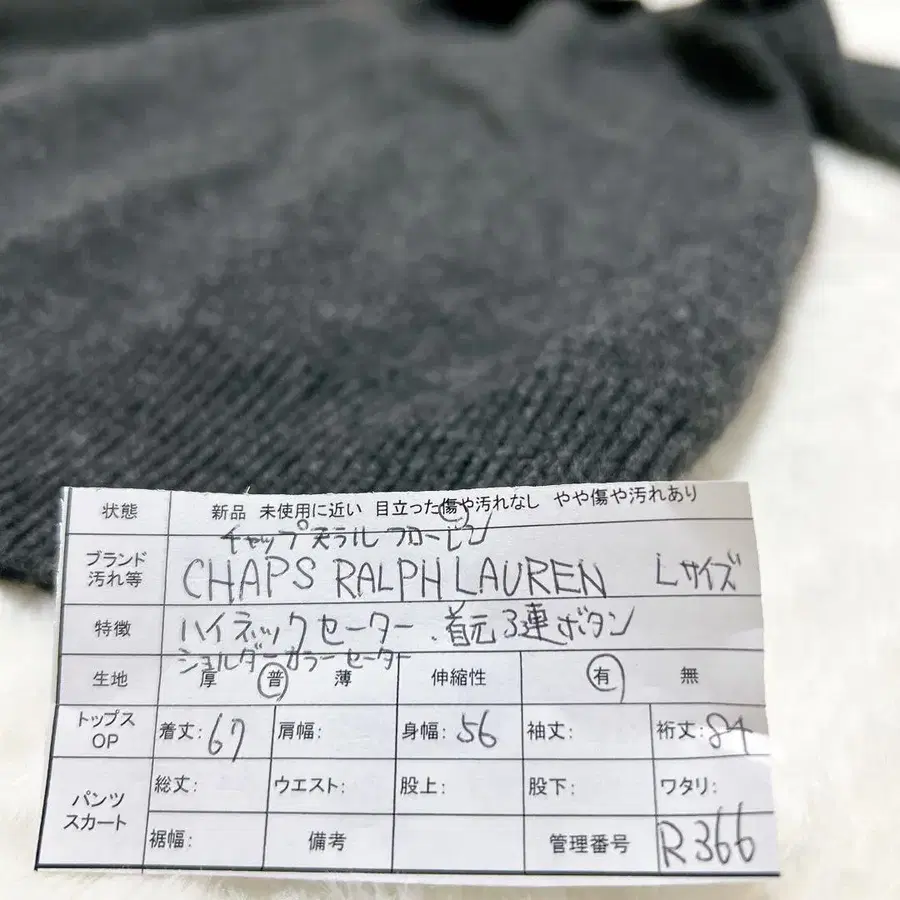 状態 新品 未使用に近い 目立った傷や汚れなし やや傷や汚れあり
ブランド 汚れ等 CHAPS RALPH LAUREN Lサイズ
特徴 ハイネックセーター.首元3連ボタン
ショルダーカラーセーター
生地 厚 普 薄 伸縮性 有 無
トップス OP 着丈:67 肩幅: 身幅:56 袖丈: 裄丈:84
パンツ スカート 総丈: ウエスト: 股上: 股下: ワタリ:
裾幅: 備考 管理番号 R366